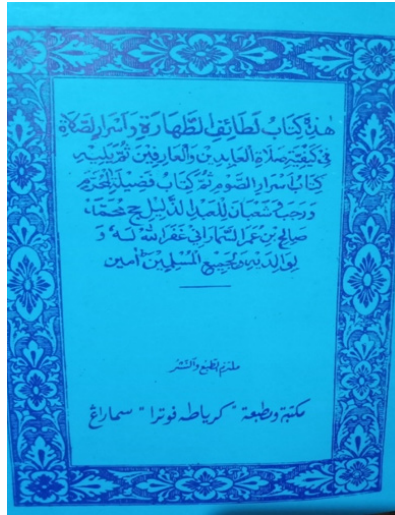 هٰذِهٖ كِتَابُ لَطَائِفِ الطَّهَارَةِ وَاَسْرَارِ الصَّلَاةِ
فِي كَيْفِيَّةِ صَلَاةِ الْعَابِدِيْنَ وَالْعَارِفِيْنَ ثُمَّ يَلِيْهِ
كِتَابُ اَسْرَارِ الصَّوْمِ ثُمَّ كِتَابُ فَضِيْلَةِ الْمُحَرَّمِ
وَرَجَبَ وَشَعْبَانَ لِلْعَبْدِ الذَّلِيْلِ حج مُحَمَّد
صَالِحْ بن عُمَرَ السَّمَارَانِيْ غَفَرَ اللهُ لَهُ وَ
لِوَالِدَيْهِ وَلِجَمِيْعِ الْمُسْلِمِيْنَ اٰمين
ملتزم الطبع والنشر
مكتبة ومطبعة "كرياطه فوترا" سماراڠ